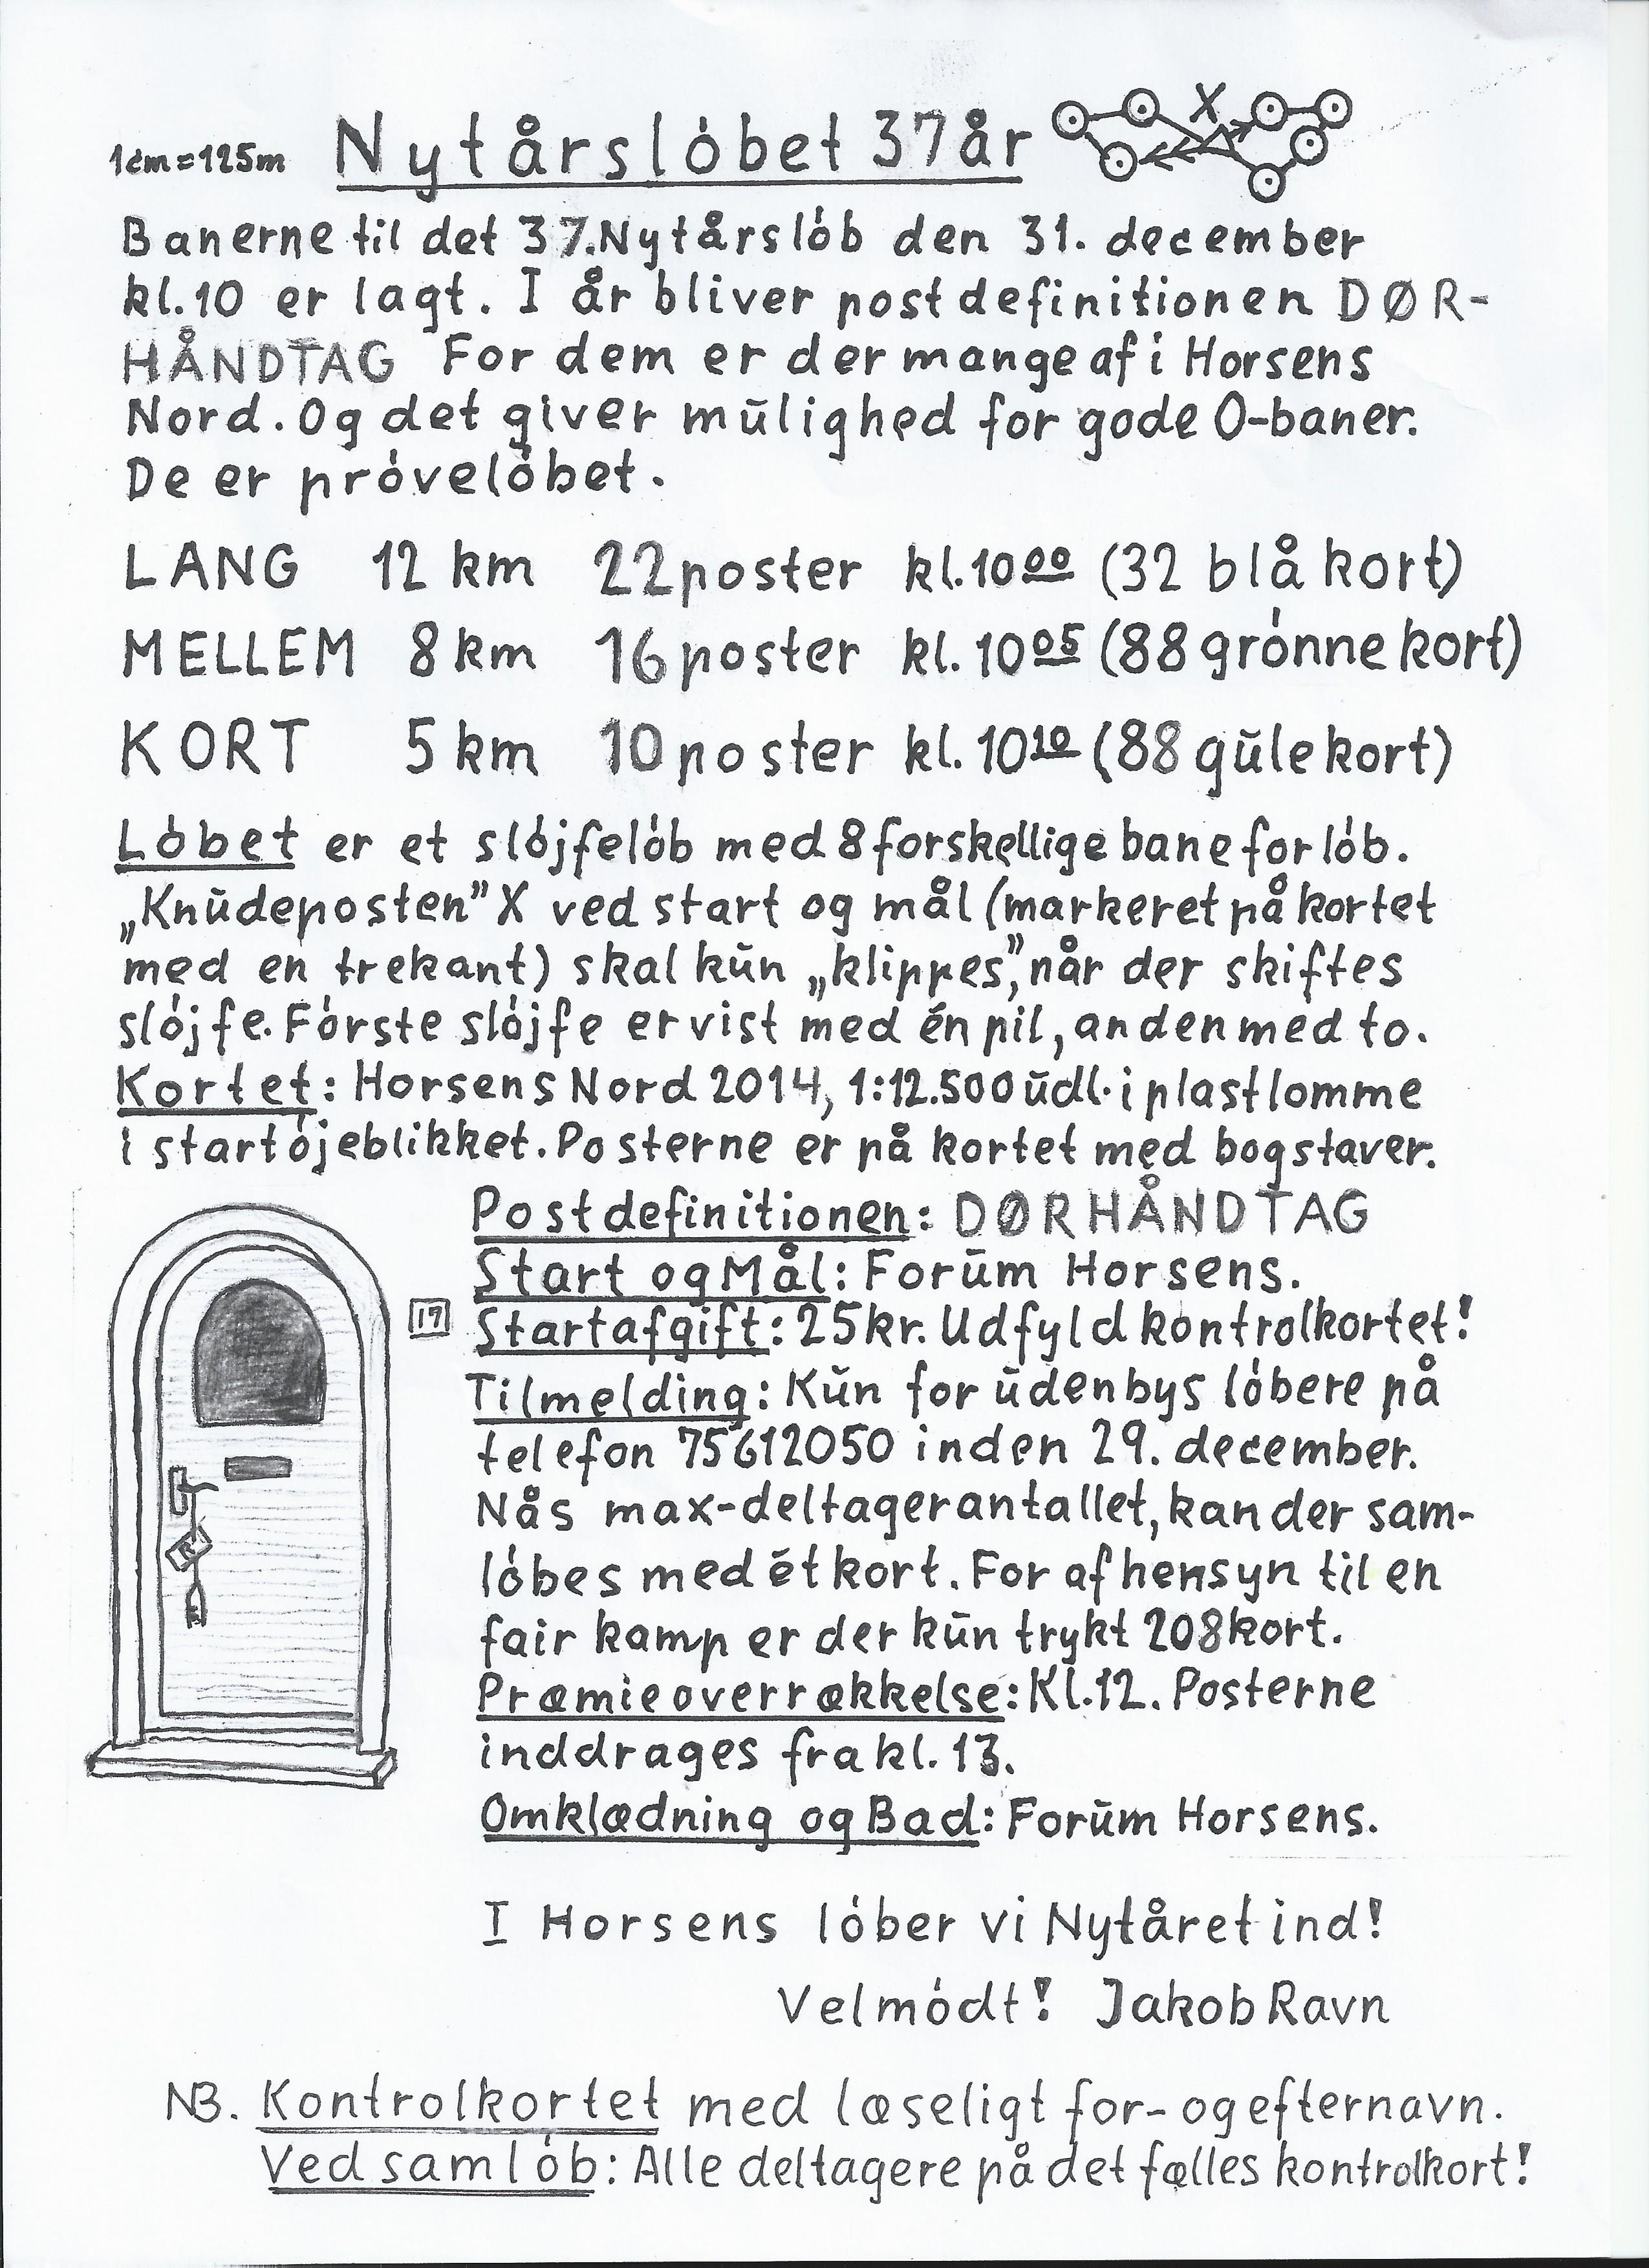 1cm=125m Nytårsløbet 37år X
Banerne til det 37.Nytårsløb den 31. december
kl.10 er lagt. I år bliver postdefinitionen DØR-
HÅNDTAG For dem er der mange af i Horsens
Nord. Og det giver mulighed for gode O-baner.
De er prøveløbet.
LANG 12 km 22 poster kl.10⁰⁰ (32 blå kort)
MELLEM 8 km 16 poster kl.10⁰⁵ (88 grønne kort)
KORT 5 km 10 poster kl.10¹⁰ (88 gule kort)
Løbet er et sløjfeløb med 8 forskellige baneforløb.
„Knudeposten” X ved start og mål (markeret på kortet
med en trekant) skal kun „klippes”, når der skiftes
sløjfe. Første sløjfe er vist med én pil, anden med to.
Kortet: Horsens Nord 2014, 1:12.500 udl. i plastlomme
i startøjeblikket. Posterne er på kortet med bogstaver.
Postdefinitionen: DØRHÅNDTAG
Start og Mål: Forum Horsens.
17
Startafgift: 25kr. Udfyld kontrolkortet!
Tilmelding: Kun for udenbys løbere på
telefon 75612050 inden 29. december.
Nås max-deltagerantallet, kan der sam-
løbes med ét kort. For af hensyn til en
fair kamp er der kun trykt 208 kort.
Præmieoverrækkelse: Kl.12. Posterne
inddrages fra kl. 13.
Omklædning og Bad: Forum Horsens.
I Horsens løber vi Nytåret ind!
Velmødt! Jakob Ravn
NB. Kontrolkortet med læseligt for- og efternavn.
Ved samløb: Alle deltagere på det fælles kontrolkort!